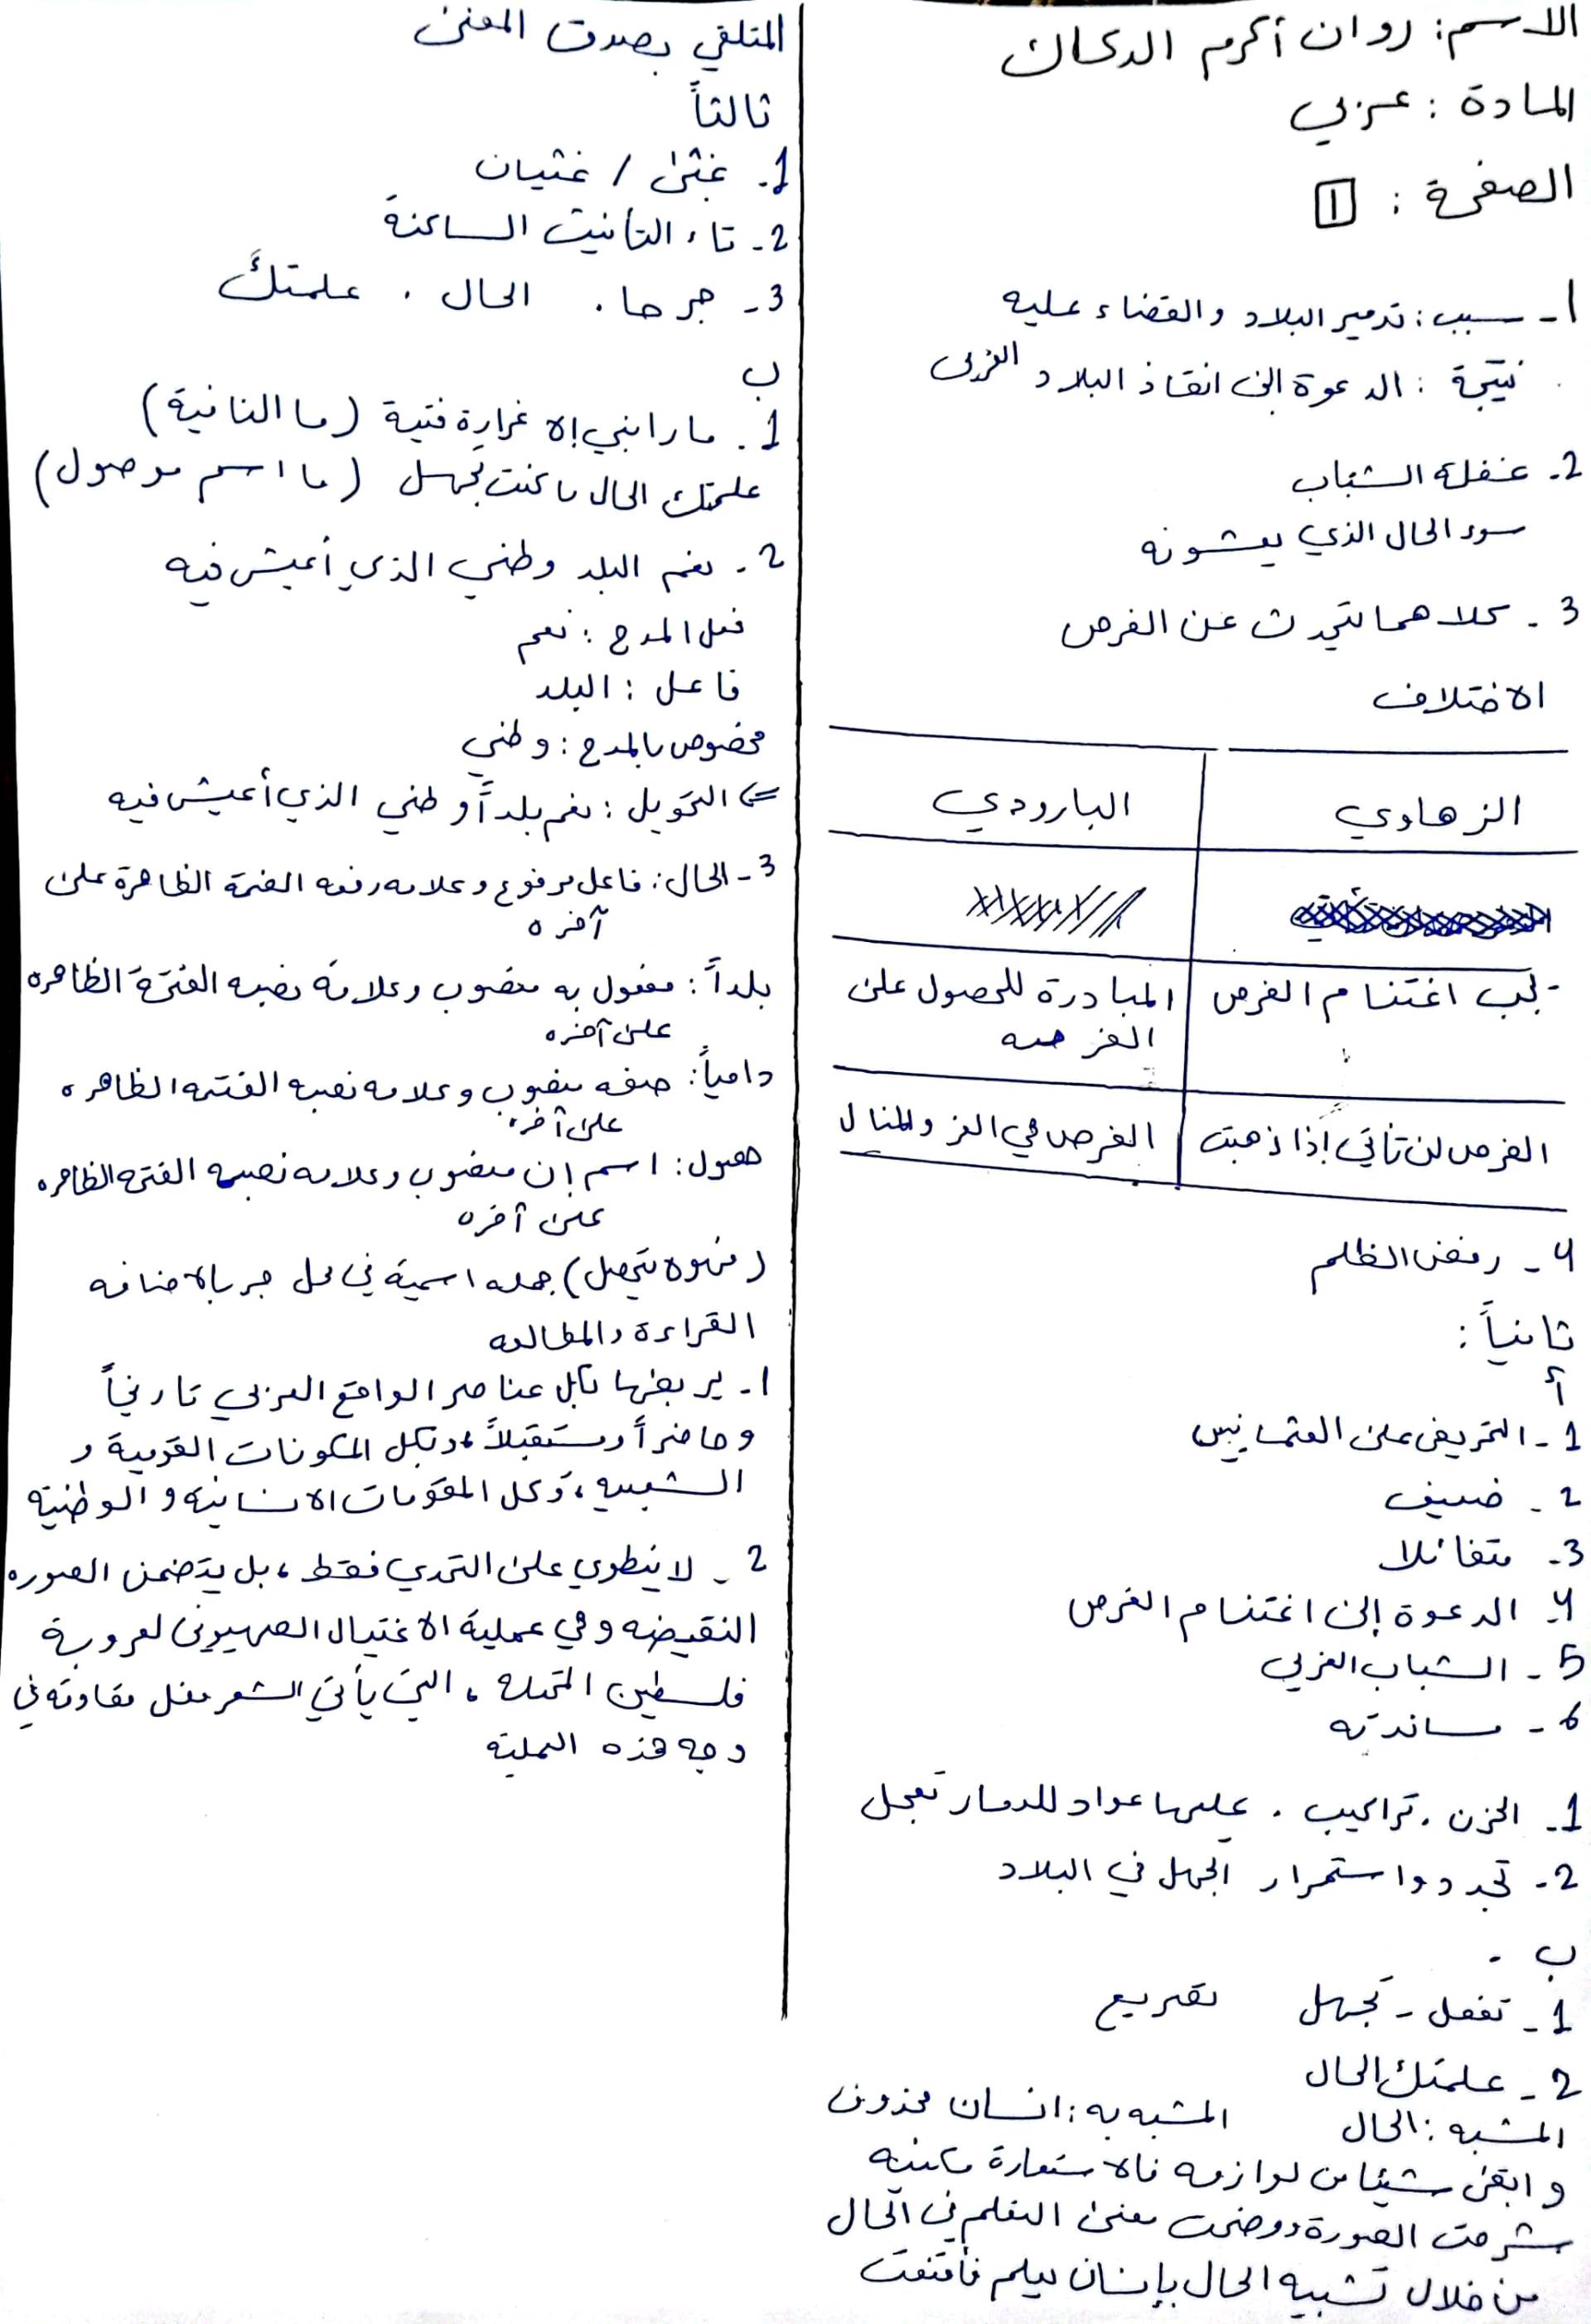 الاسم: روان أكرم الدكاك
المادة: عربي
الصفحة: 1
1- سبب: تدمير البلاد والقضاء عليه
نتيجة: الدعوة إلى انقاذ البلاد
2- غفلة الشباب
سوء الحال الذي يعشونه
3- كلاهما تحدث عن الفرص
الاختلاف
الزهاوي | البارودي
- يجب اغتنام الفرص | المبادرة للحصول على
الفرصه
الفرص لن تأتي إذا ذهبت | الفرص هي العز والمنال
4- رفض الظلم
ثانياً:
أ
1- التحريض على العثمانيين
2- ضعيف
3- متفائلا
4- الدعوة إلى اغتنام الفرص
5- الشباب العربي
6- ساندته
1- الحزن. تراكيب. عليها عواد للدمار تعجل
2- تجدد واستمرار الجهل في البلاد
ب -
1- تغفل - تجهل تصريع
2- علمتك الحال
المشبه: الحال المشبه به: انسان محذوف
وابقى شيئا من لوازمه فالاستعارة مكنيه
شرحت الصورة ووضحت معنى التعلم في الحال
من خلال تشبيه الحال بإنسان يعلم فأقنعت
المتلقي بصدق المعنى
ثالثاً
1- غثى / غثيان
2- تاء التأنيث الساكنة
3- جرحا. الحال. علمتك
ب
1. ما رابني إلا غرارة فتية (ما النافية)
علمتك الحال ما كنت تجهل (ما اسم موصول)
2- نعم البلد وطني الذي أعيش فيه
فعل المدح: نعم
فاعل: البلد
مخصوص بالمدح: وطني
التحويل: نعم بلداً وطني الذي أعيش فيه
3- الحال: فاعل مرفوع وعلامه رفعه الضمة الظاهرة على
آخره
بلداً: مفعول به منصوب وعلامة نصبه الفتحة الظاهره
على آخره
دامياً: صفه منصوب وعلامه نصبه الفتحه الظاهره
على آخره
اسم إن منصوب وعلامه نصبه الفتحه الظاهره
على آخره
جمله اسمية في محل جر بالاضافه
القراءة والمطالعه
1- يربطها بكل عناصر الواقع العربي تاريخاً
وحاضراً ومستقبلاً، وبكل المكونات القومية و
الشعبيه، وكل المقومات الانسانيه والوطنيه
2- لا ينطوي على التحدي فقط، بل يتضمن الصوره
النقيضه وهي عملية الاغتيال الصهيوني لعروبة
فلسطين المحتله، التي يأتي الشعر فعل مقاومة في
وجه هذه العملية